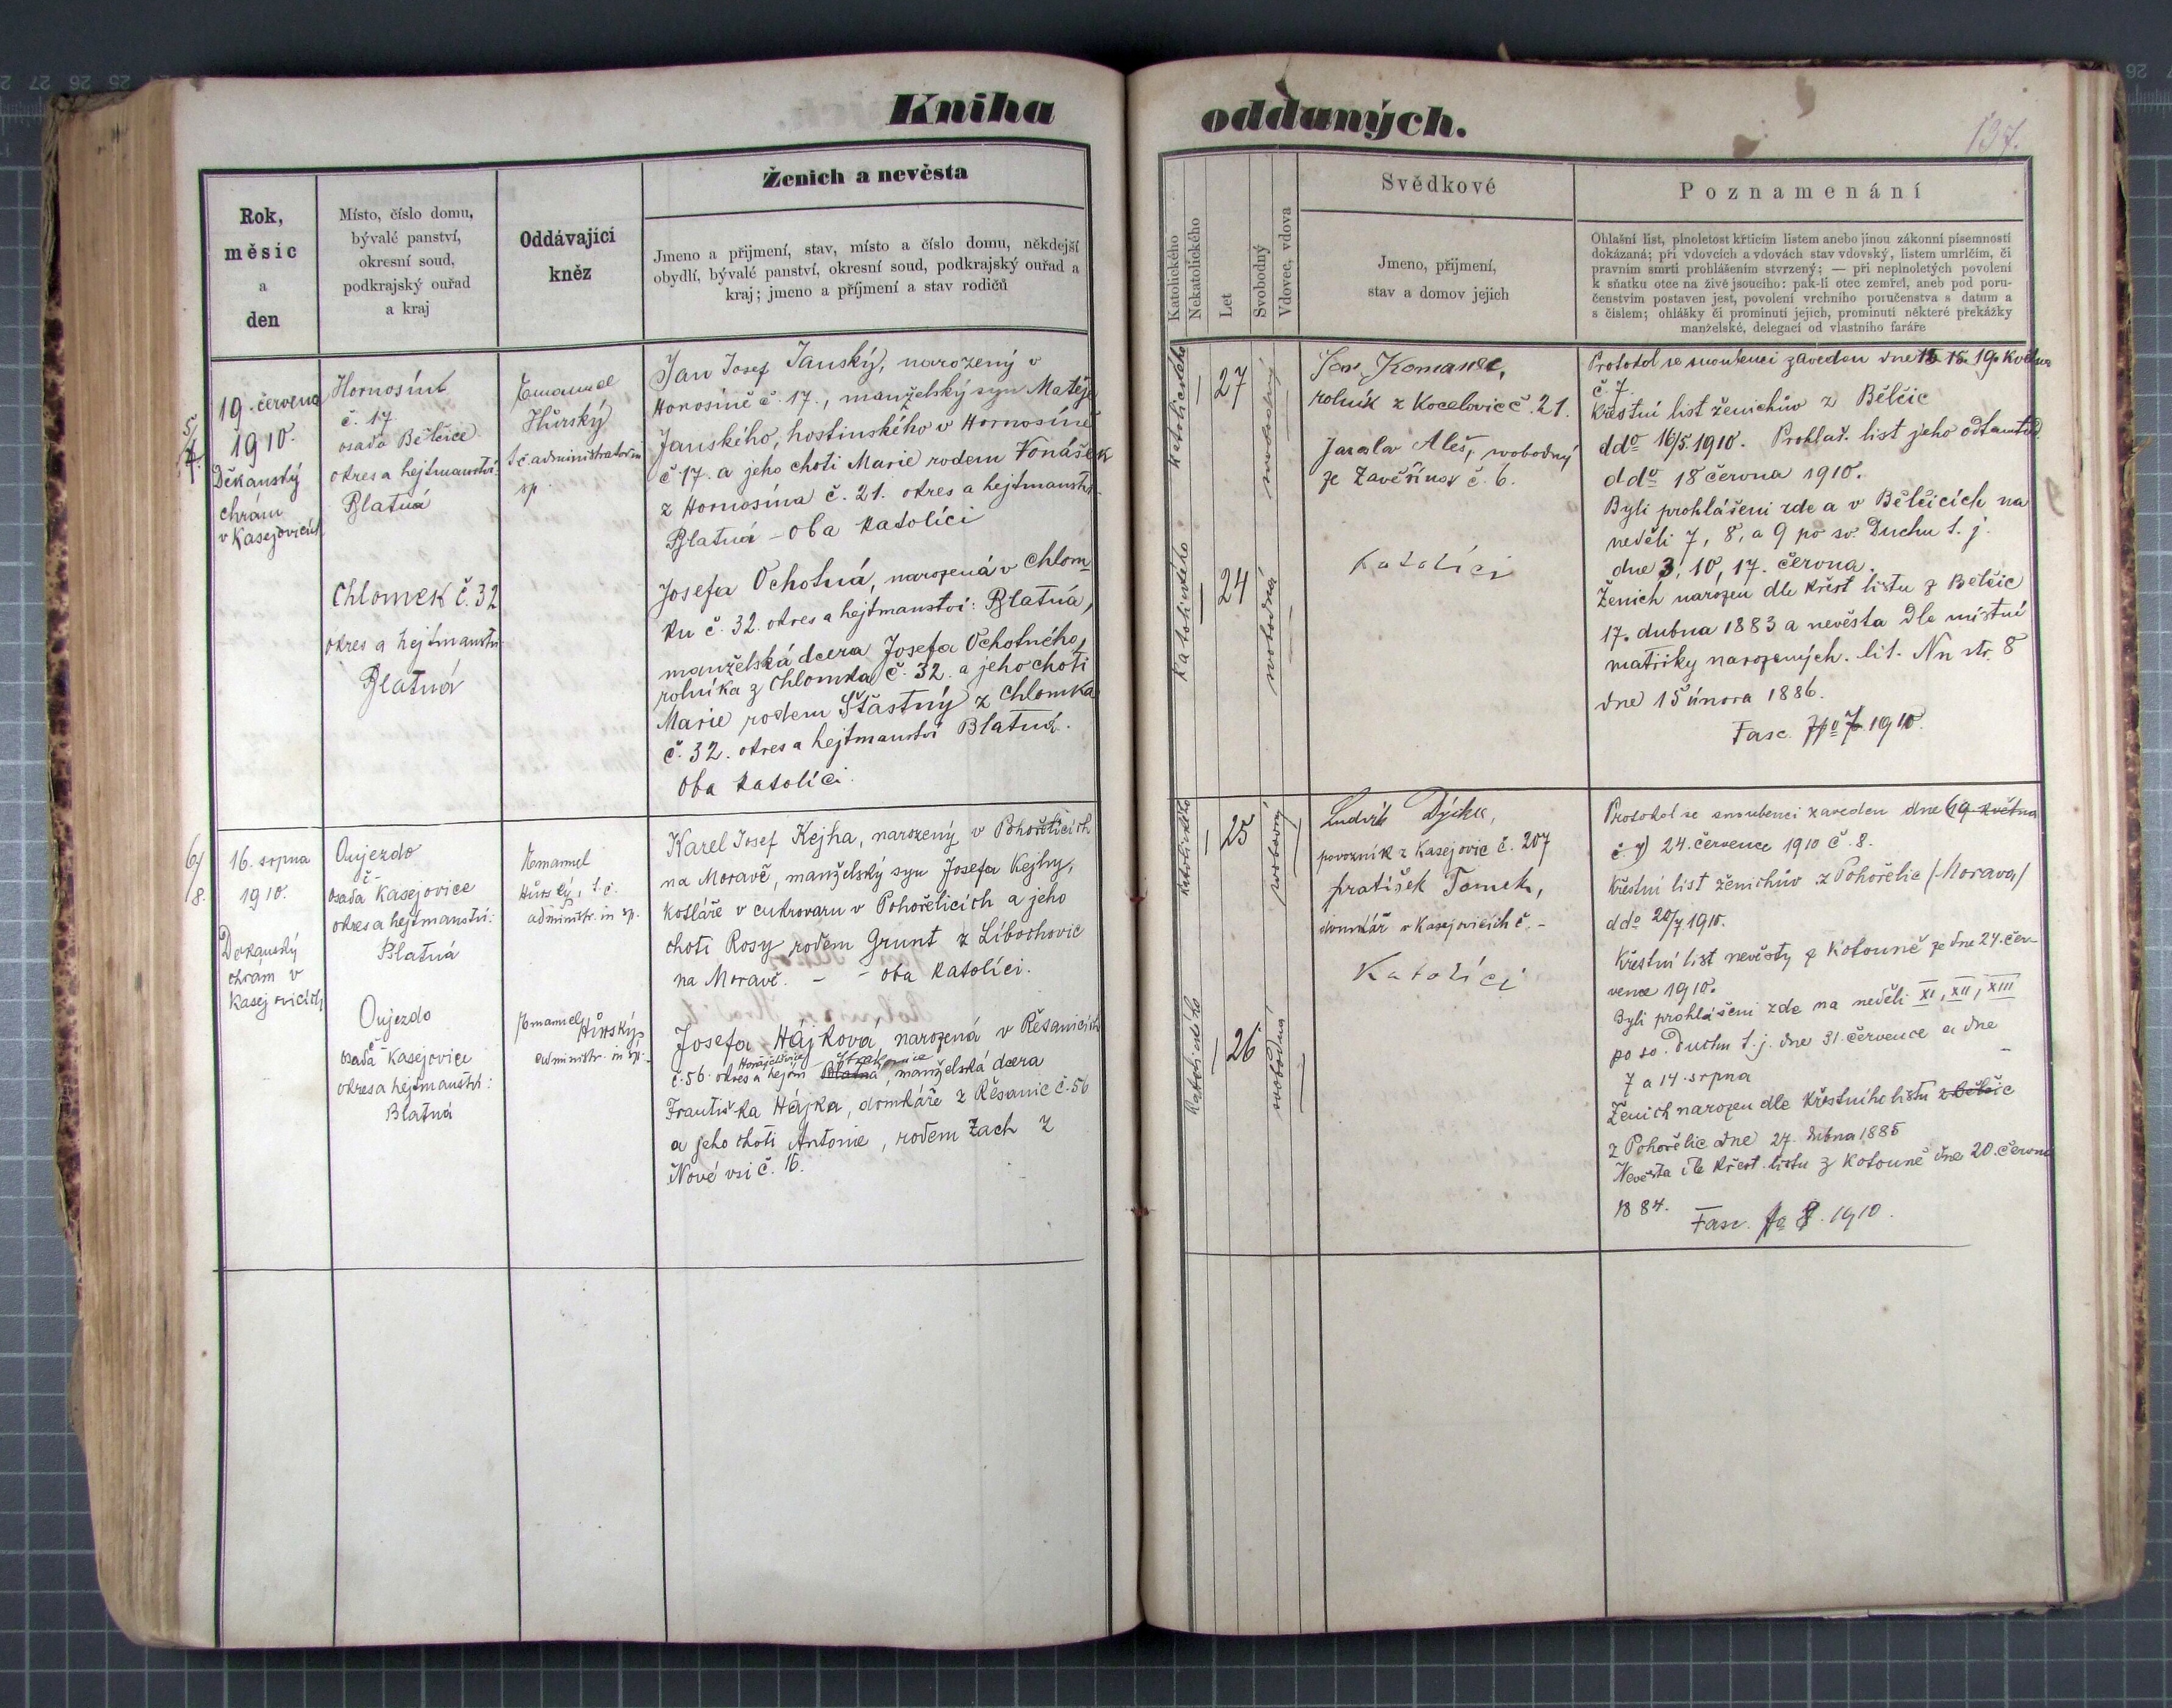 Kniha
oddaných.
137.
Rok,
měsíc
a
den
Místo, číslo domu,
bývalé panství,
okresní soud,
podkrajský ouřad
a kraj
Oddávající
kněz
Ženich a nevěsta
Jmeno a přijmení, stav, místo a číslo domu, někdejší
obydlí, bývalé panství, okresní soud, podkrajský ouřad a
kraj; jmeno a příjmení a stav rodičů
Katolického
Nekatolického
Let
Svobodný
Vdovec, vdova
Svědkové
Jmeno, přijmení,
stav a domov jejich
Poznamenání
Ohlašní list, plnoletost křticím listem anebo jinou zákonní písemností
dokázaná; při vdovcích a vdovách stav vdovský, listem umrlčím, či
pravním smrti prohlášením stvrzený; — při neplnoletých povolení
k sňatku otce na živě jsoucího: pak-li otec zemřel, aneb pod poru-
čenstvím postaven jest, povolení vrchního poručenstva s datum a
s číslem; ohlášky či prominutí jejich, prominutí některé překážky
manželské, delegací od vlastního faráře
5/
19. června
1910.
Děkanský
chrám
v Kasejovicích
Hornosíně
č. 17
osada Bělčice
okres a hejtmanství:
Blatná
Chlomek č. 32
okres a hejtmanství:
Blatná
Emanuel
Hůrský
t. č. administrator in
sp.
Jan Josef Janský, narozený v
Hornosíně č. 17., manželský syn Matěje
Janského, hostinského v Hornosíně
č. 17. a jeho choti Marie rodem Vonášek
z Hornosína č. 21. okres a hejtmanství
Blatná - oba katolíci
Josefa Ochotná, narozená v Chlom
ku č. 32. okres a hejtmanství: Blatná,
manželská dcera Josefa Ochotného,
rolníka z Chlomka č. 32. a jeho choti
Marie rodem Šťastný z Chlomka
č. 32. okres a hejtmanství Blatná.
Oba katolíci.
Katolického
27
svobodný
Katolického
24
svobodná
Jan
rolník z Kocelovic č. 21.
Aleš, svobodný
ze Závěšína č. 6.
Katolíci
Protokol se snoubenci zaveden dne 15 19. května
č. 7.
Křestní list ženichův z Bělčic
ddo 16/5. 1910. Prohlaš. list jeho odtamtud
ddo 18 června 1910.
Byli prohlášeni zde a v Bělčicích na
neděli 7, 8, a 9 po sv. Duchu t. j.
dne 3, 10, 17. června.
Ženich narozen dle křest listu z Bělčic
17. dubna 1883 a nevěsta dle místní
matriky narozených. lit. Nn str. 8
dne 15 února 1886.
Fasc. 7 1910.
6/
8.
16. srpna
1910.
Děkanský
chrám v
Kasejovicích
Oujezdo
č -
osada Kasejovice
okres a hejtmanství:
Blatná
Oujezdo
č -
osada Kasejovice
okres a hejtmanství:
Blatná
Emanuel
Hůrský, t. č.
administr. in sp.
Emanuel Hůrský,
administr. in sp.
Karel Josef Kejha, narozený v Pohořelicích
na Moravě, manželský syn Josefa Kejhy,
kotláře v cukrovaru v Pohořelicích a jeho
choti Rosy rodem Grunt z Libochovic
na Moravě. - - oba katolíci.
Josefa Hájková, narozená v Řesanicích
Horažďovice Strakonice
č. 56 okres a hejtm Blatná, manželská dcera
Františka Hájka, domkáře z Řesanic č. 56
a jeho choti Antonie, rodem Zach z
Nové vsi č. 16.
Katolického
25
svobodný
Katolického
26
svobodná
Ludvík Dýcha,
povozník z Kasejovic č. 207
Fratišek Tomek,
domkář v Kasejovicích č. -
Katolíci
Protokol se snoubenci zaveden dne (19 května
č. 7) 24. července 1910 č. 8.
Křestní list ženichův z Pohořelic /Morava/
ddo 20/7 1910.
Křestní list nevěsty z Kotouně ze dne 24. čer-
vence 1910.
Byli prohlášeni zde na neděli XI, XII, XIII
po sv. Duchu t. j. dne 31. července a dne
7 a 14. srpna
Ženich narozen dle křestního listu z Bělčic
z Pohořelic dne 27. dubna 1885
Nevěsta dle křest. listu z Kotouně dne 20. června
1884.
Fasc. 8. 1910.